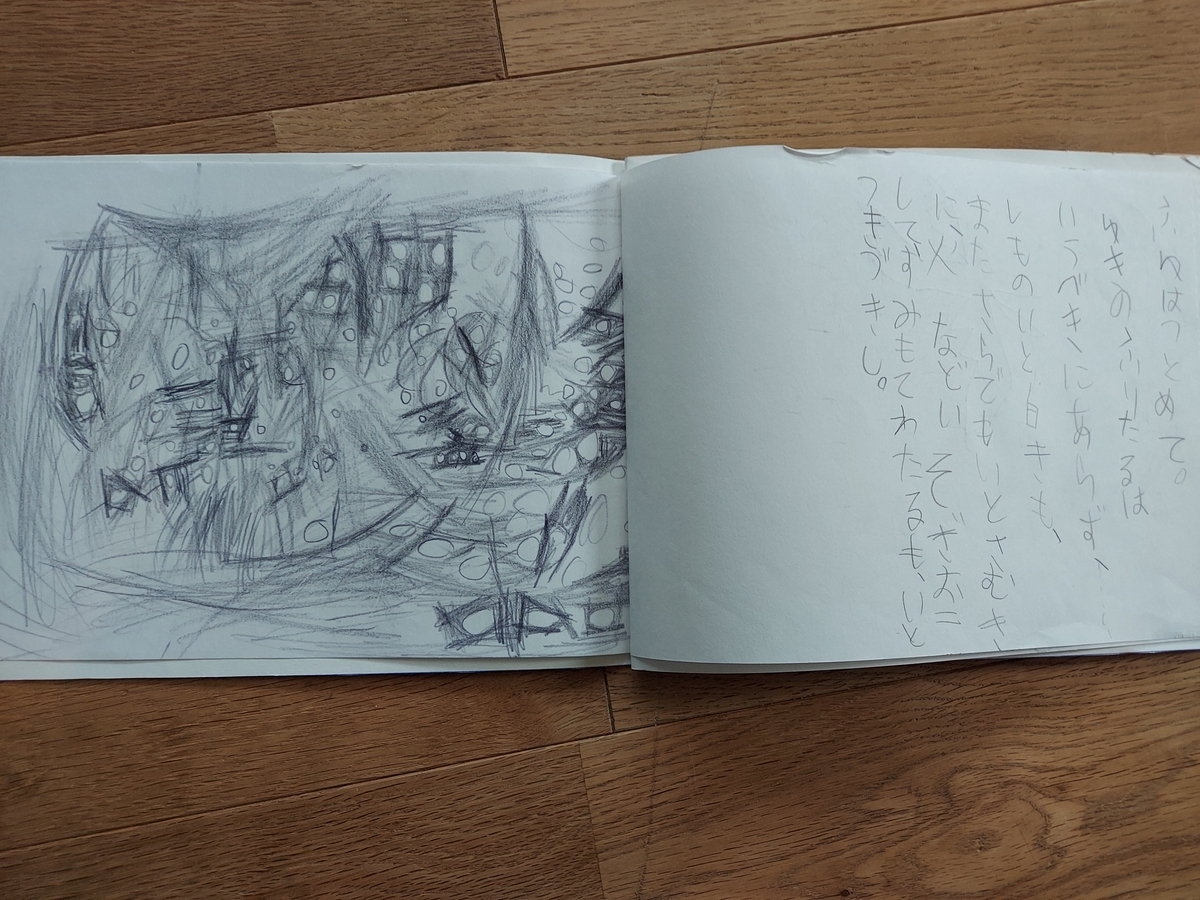 ふゆはつとめて。
ゆきのふりたるは
いうべきにあらず、
しものいと白きも、
またさらでもいとさむき
に、火などいそぎおこ
してずみもてわたるも、いと
つきづきし。